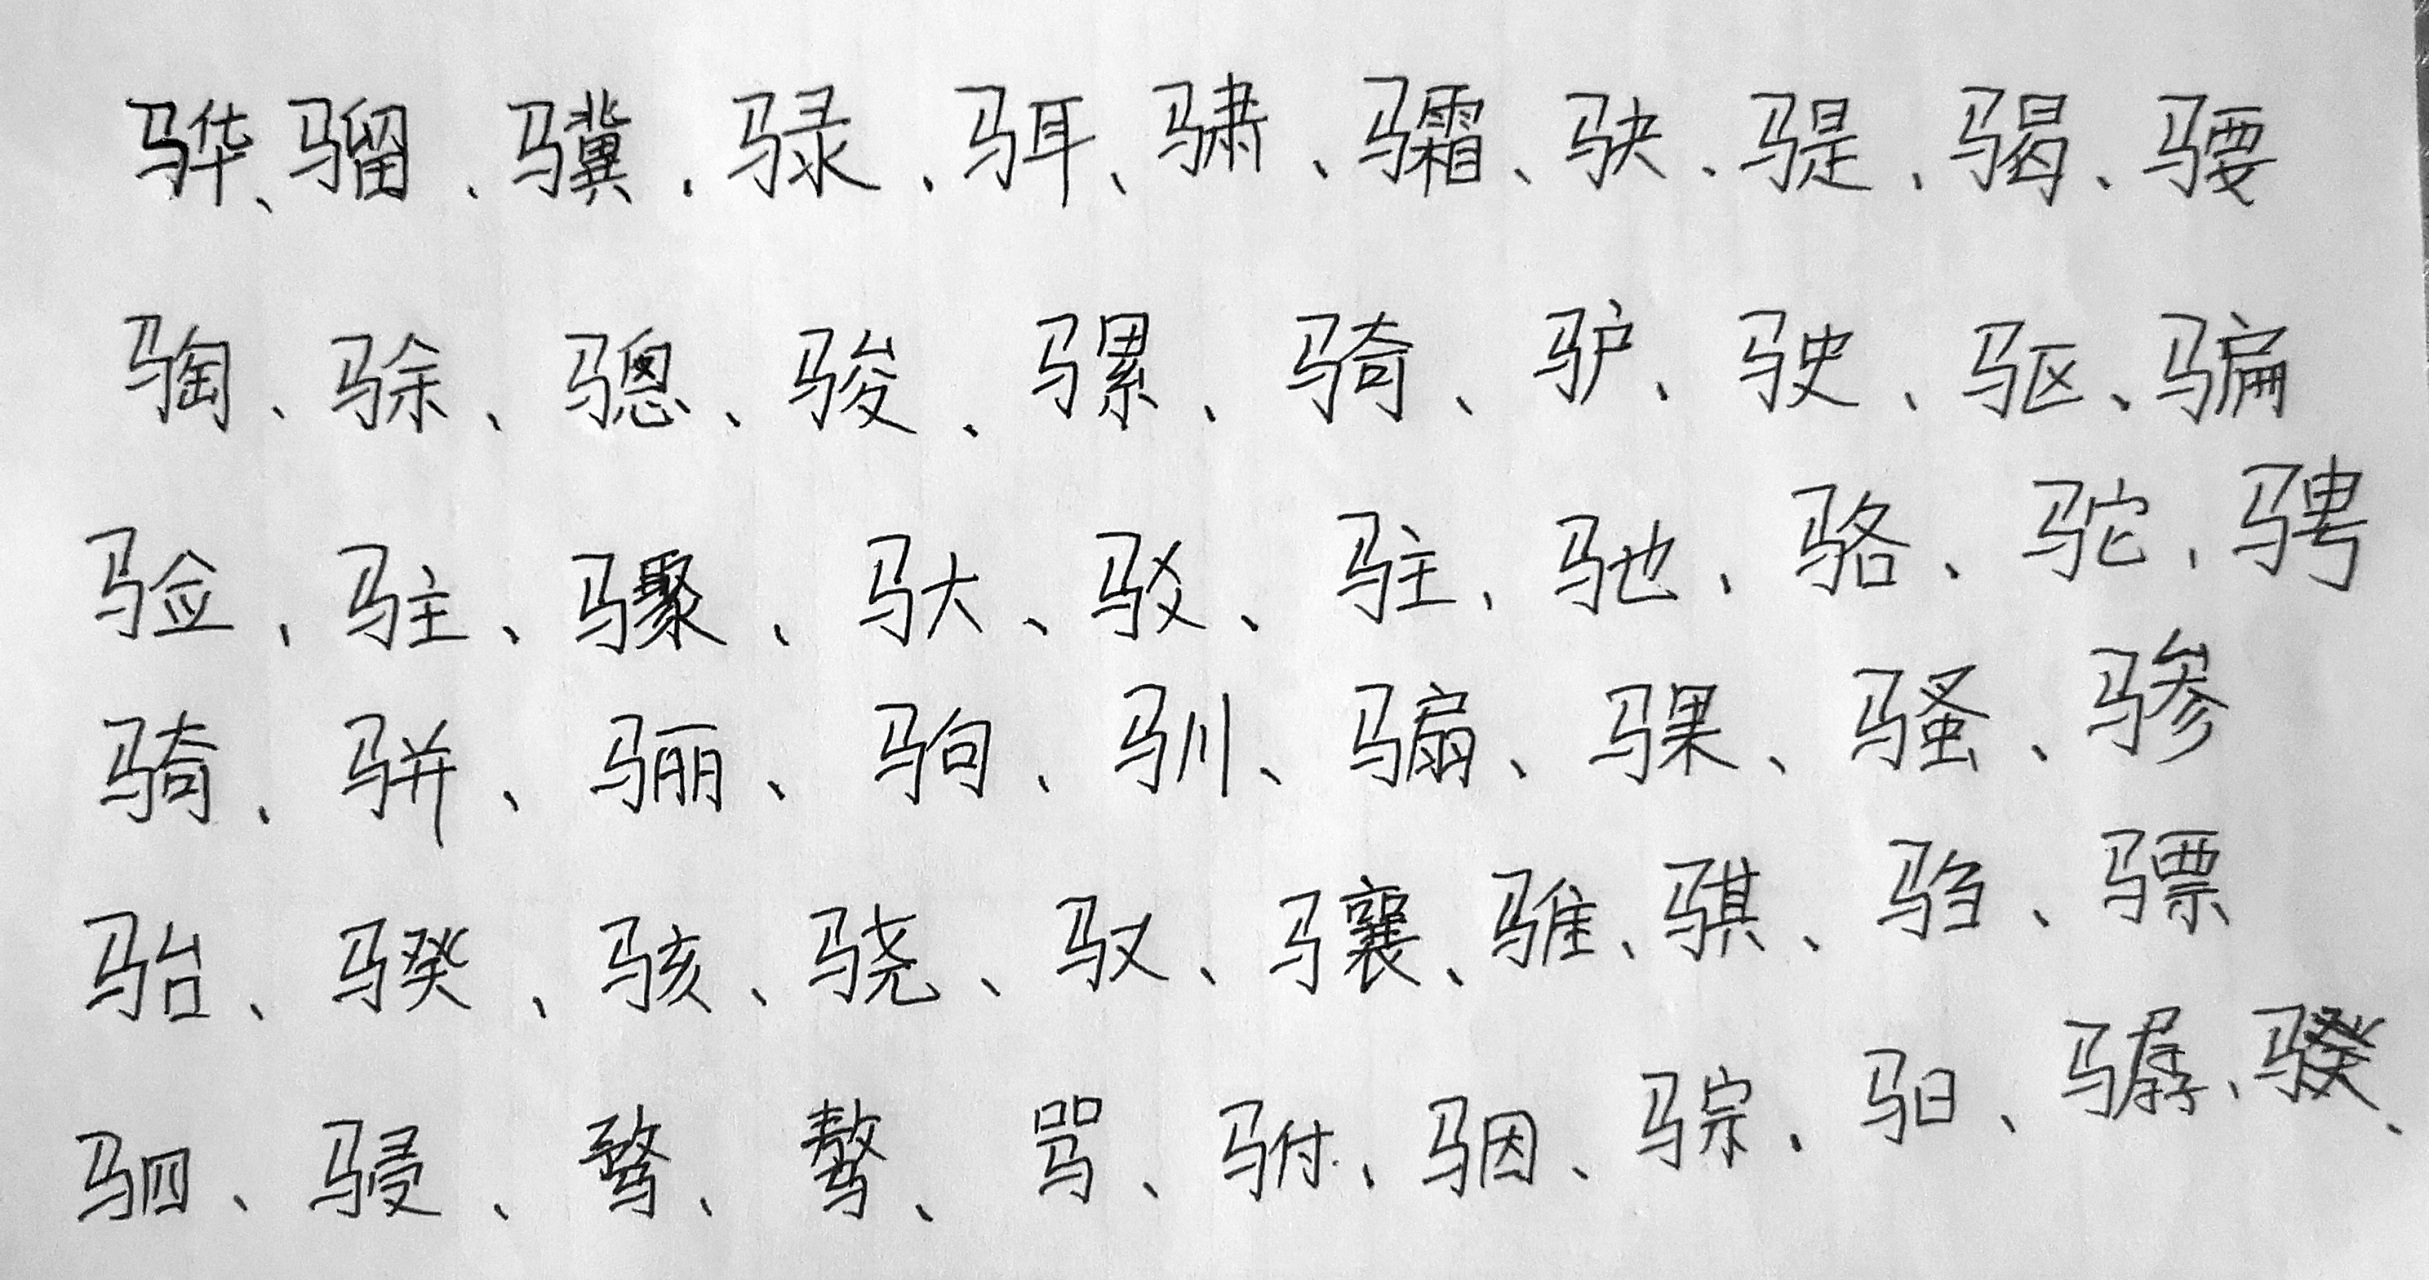 骅、骝、骥、𫘧、𬳵、骕、骦、𫘝、𫘨、𬳽、𬴊
𫘦、𬳿、骢、骏、骡、骑、驴、驶、驱、骗
验、驻、骤、驮、驳、驻、驰、骆、驼、骋
骑、骈、骊、驹、驯、骟、骒、骚、骖
骀、骙、骇、骁、驭、骧、骓、骐、驺、骠
驷、骎、骛、骜、骂、驸、骃、骔、驲、骣、骙、